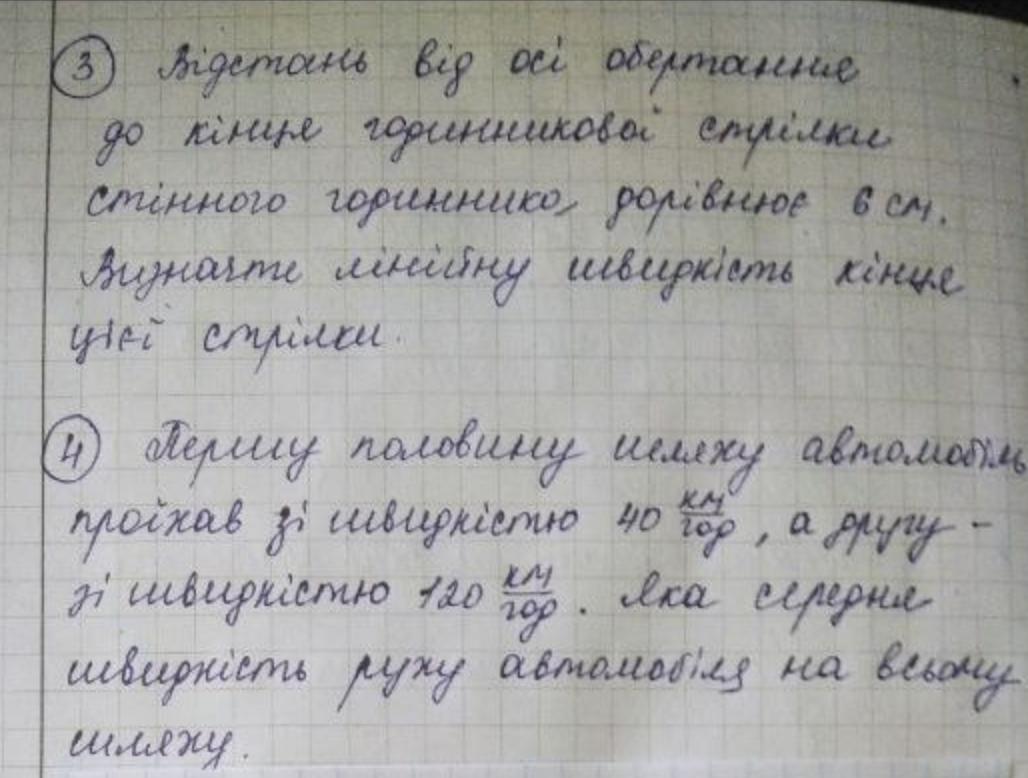 ③ Відстань від осі обертання
до кінця годинникової стрілки
стінного годинника дорівнює 6 см.
Визначте лінійну швидкість кінця
цієї стрілки.
④ Першу половину шляху автомобіль
проїхав зі швидкістю 40 км/год, а другу -
зі швидкістю 120 км/год. Яка середня
швидкість руху автомобіля на всьому
шляху.